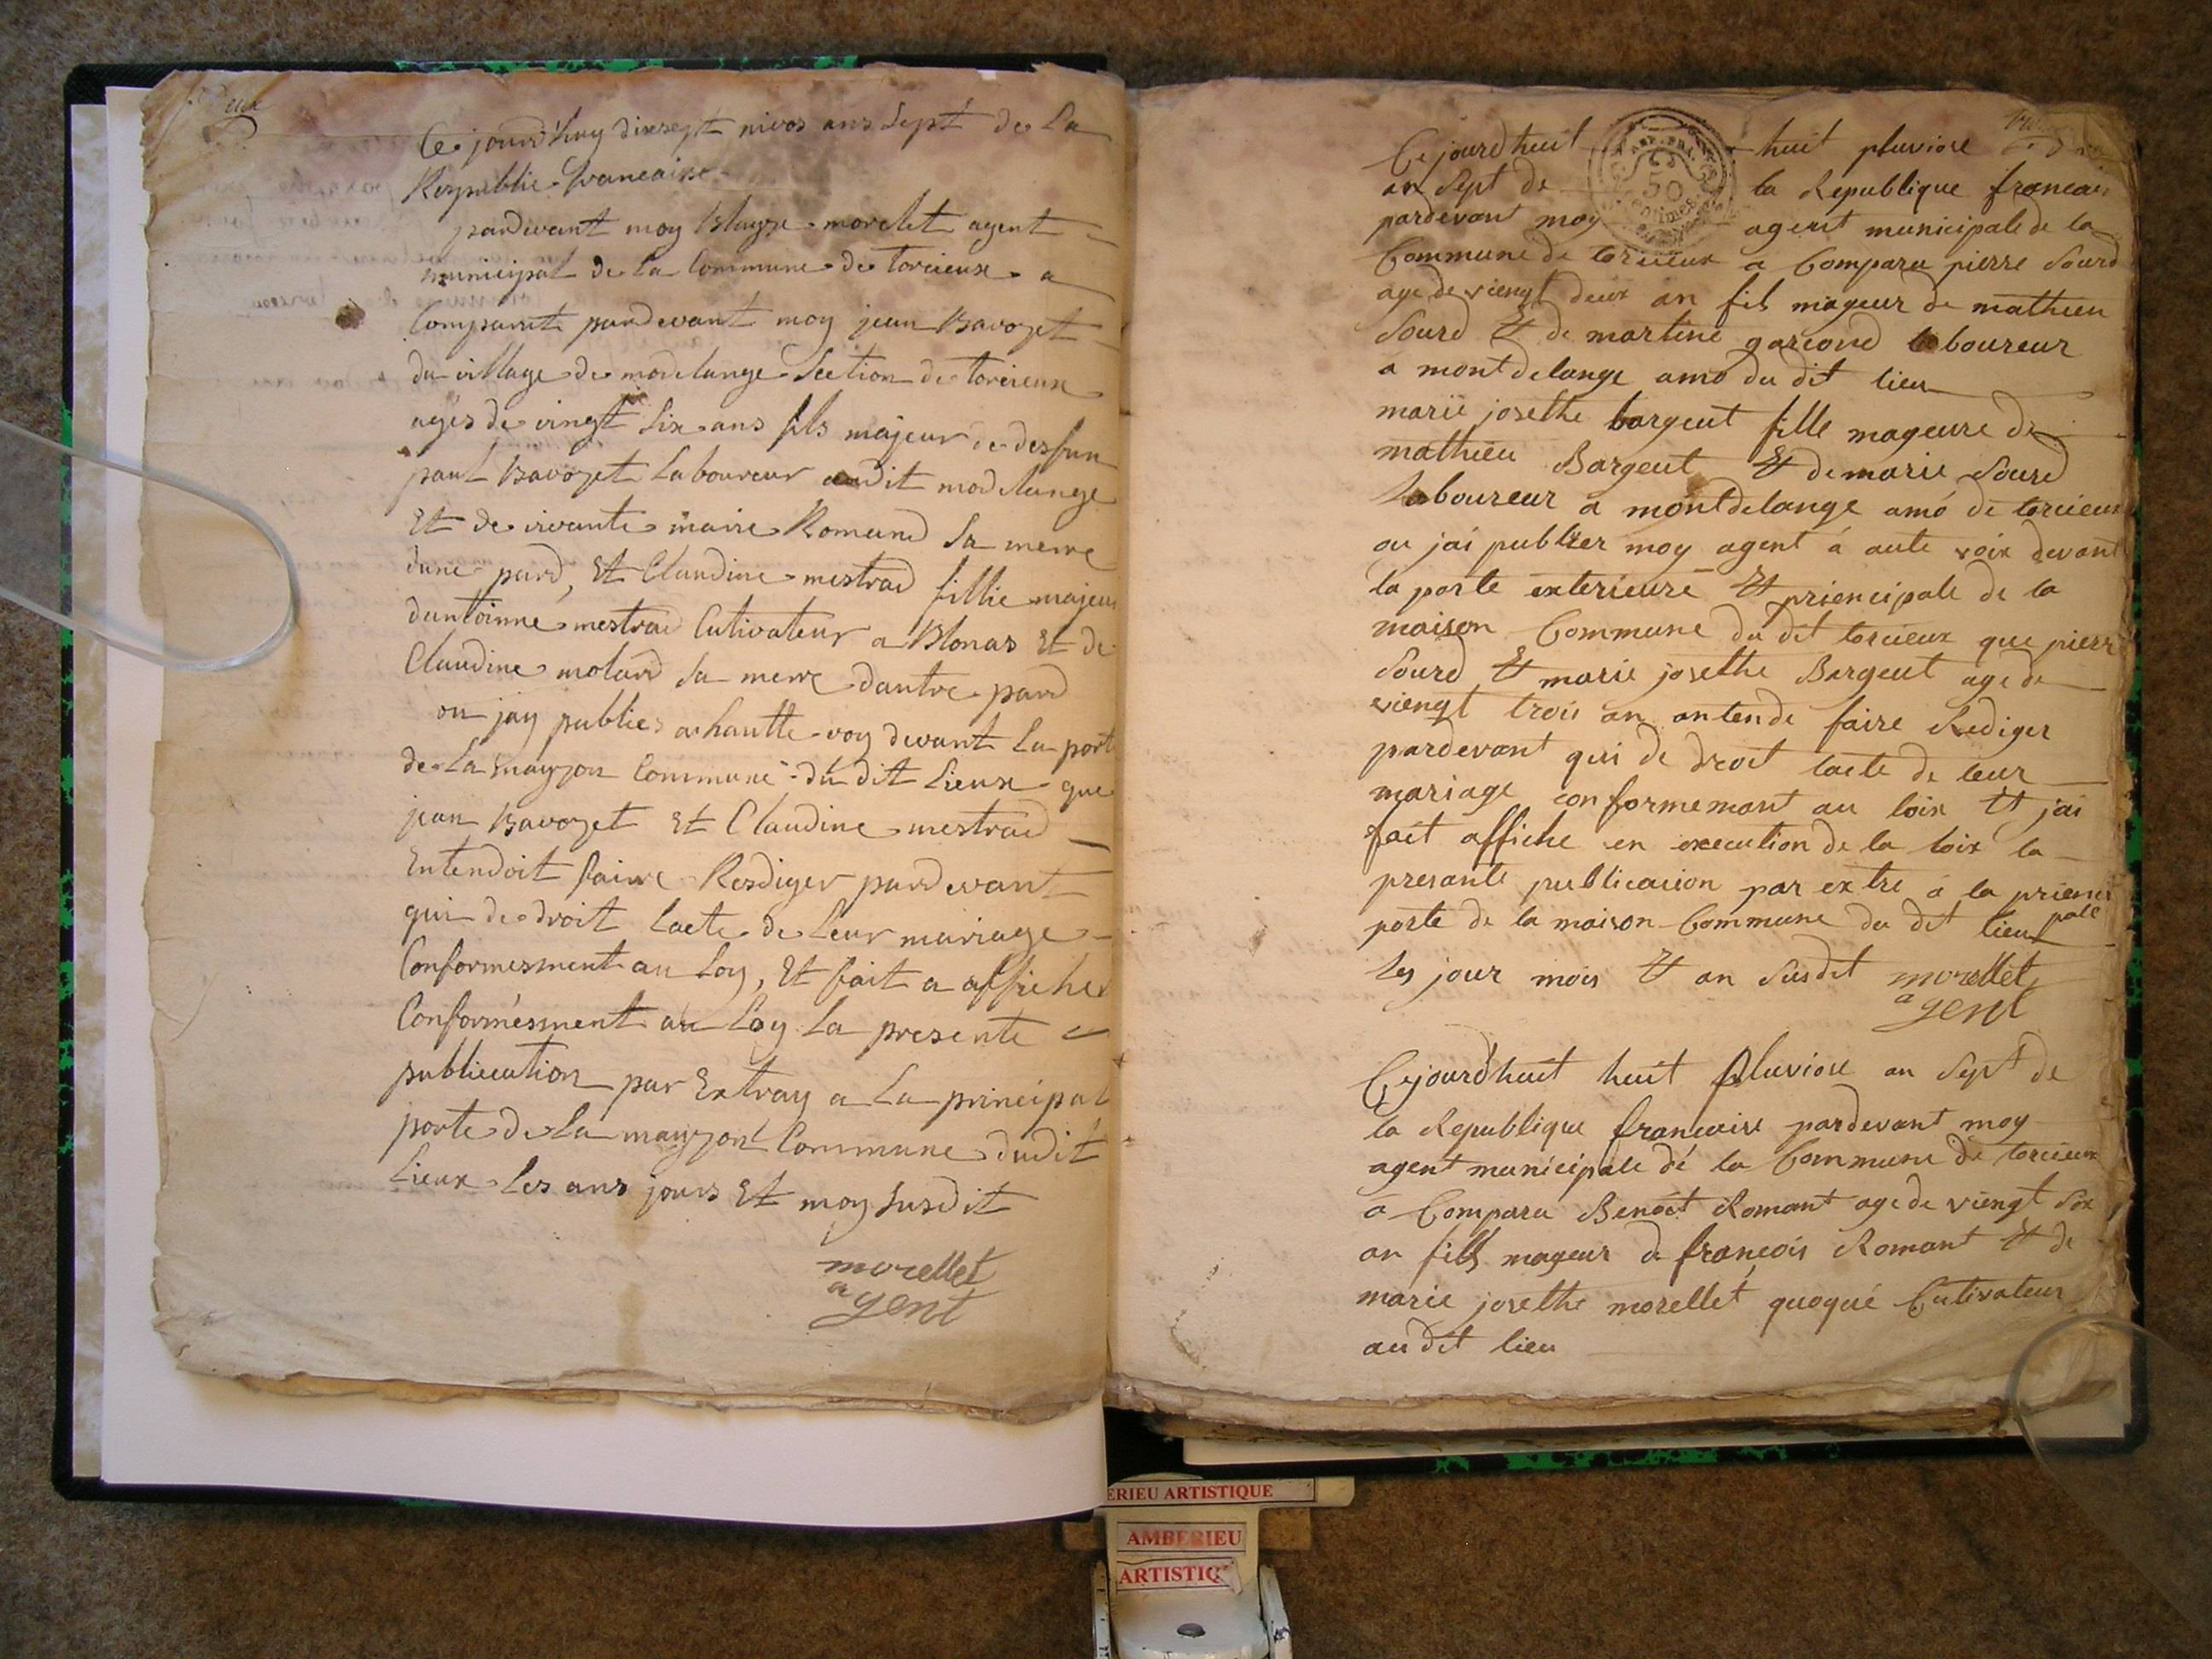 Ce jourd'huy dixsept nivos ans Sept de La
Respublic francaise
pardevant moy Blayze morelet agent
municipal de La Commune de torcieux a
Comparut pardevant moy jean Bavozet
du village de modelange Section de torcieux
agés de vingt Six ans fils majeur de desfun
paul Bavozet Laboureur audit modelange
Et de vivante maire Romand Sa merre
dune pard, Et Claudine mestrad fillie majeur
dantoinne mestrad Cutivateur a Blonas Et de
Claudine molard Sa merre dautre pard
ou jay publies a hautte voy devant La port
de La mayzon Commune du dit Lieux que
jean Bavozet Et Claudine mestrad
Entendoit fairre Resdiger pardevant
qui de droit Lacte de Leur mariage
Conformesment au Loy, Et fait a affiche
Conformesment au Loy La presente
publiccation par Extray a La principal
porte de La mayzon Commune dudit
Lieux Les ans jours Et moy Susdit
morellet
agent
Cejourdhuit huit pluviose
an Sept de la Republique francais
pardevant moy agent municipale de la
Commune de torcieux a Comparu pierre Sourd
age de viengt deux an fils mageur de mathieu
Sourd Et de martine garcond laboureur
a montdelange amo du dit lieu
marie josethe bargeut fille mageure de
mathieu Bargeut Et de marie Sourd
laboureur a montdelange amo de torcieux
ou jai publier moy agent á aute voix devant
la porte exterieure Et priencipale de la
maison Commune du dit torcieux que pierr
Sourd Et marie josethe Bargeut age de
viengt trois an antende faire Rediger
pardevant qui de droit lacte de leur
mariage conformemant au loix Et jai
fait affiche en execution de la loix la
presante publicacion par extre á la prienci
pale
porte de la maison Commune du dit lieu
les jour mois Et an Susdit morellet
agent
Cejourdhuit huit pluviose an Sept de
la Republique francaise pardevant moy
agent municipale de la Commune de torcieux
a Comparu Benoit Romant age de viengt Six
an fills mageur de francois Romant Et de
marie josethe morellet quoqué Cutivateur
au dit lieu
50
centimes
ERIEU ARTISTIQUE
AMBERIEU
ARTISTIQ